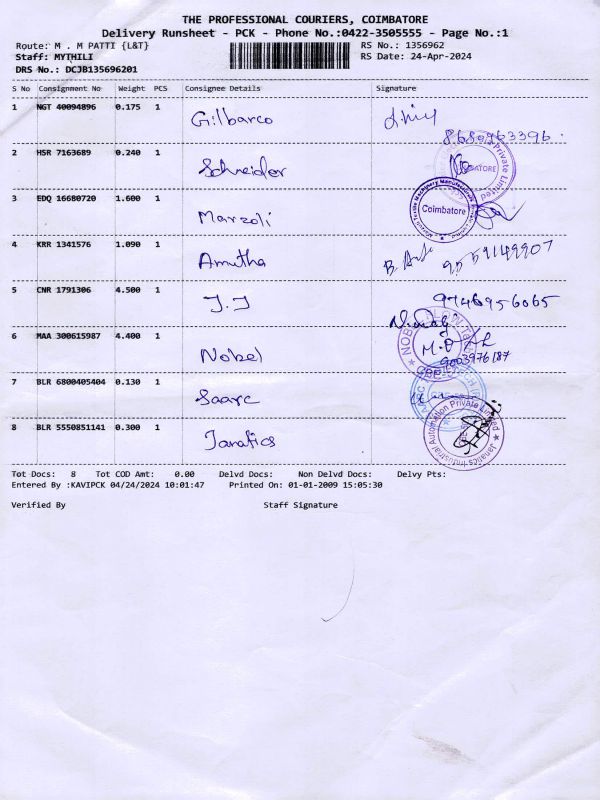 THE PROFESSIONAL COURIERS, COIMBATORE
Delivery Runsheet - PCK - Phone No.:0422-3505555 - Page No.:1
Route: M . M PATTI {L&T}
RS No.: 1356962
Staff: MYTHILI
RS Date: 24-Apr-2024
DRS No.: DCJB135696201
S No Consignment No Weight PCS Consignee Details Signature
1 NGT 40094896 0.175 1 Gilbarco
8680963396.
2 HSR 7163689 0.240 1 Schneider
Private Limited
3 EDQ 16680720 1.600 1 Marzoli
Coimbatore
4 KRR 1341576 1.090 1 Amutha
9559149907
5 CNR 1791306 4.500 1 J.J
9746956065
6 MAA 300615987 4.400 1 Nobel
9003976187
7 BLR 6800405404 0.130 1 Saarc
8 BLR 5550851141 0.300 1 Janatics
Janatics Industrial Automation Private Limited
Tot Docs: 8 Tot COD Amt: 0.00 Delvd Docs: Non Delvd Docs: Delvy Pts:
Entered By :KAVIPCK 04/24/2024 10:01:47 Printed On: 01-01-2009 15:05:30
Verified By Staff Signature